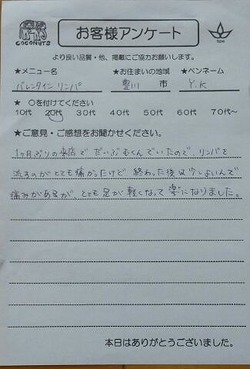 COCONUTS
お客様アンケート
より良い品質・他、掲載にご協力お願いします。
★メニュー名 ★お住まいの地域 ★ペンネーム
バレンタインリンパ 豊川 市 Y.K
★ ○を付けてください
10代 20代 30代 40代 50代 60代 70代〜
★ご意見・ご感想をお聞かせください。
1ヶ月ぶりの来店でだいぶむくんでいたので、リンパを
流すのがとても痛かったけど 終わった後は少しよいんで
痛みがあるが、とても足が軽くなって楽になりました。
本日はありがとうございました。